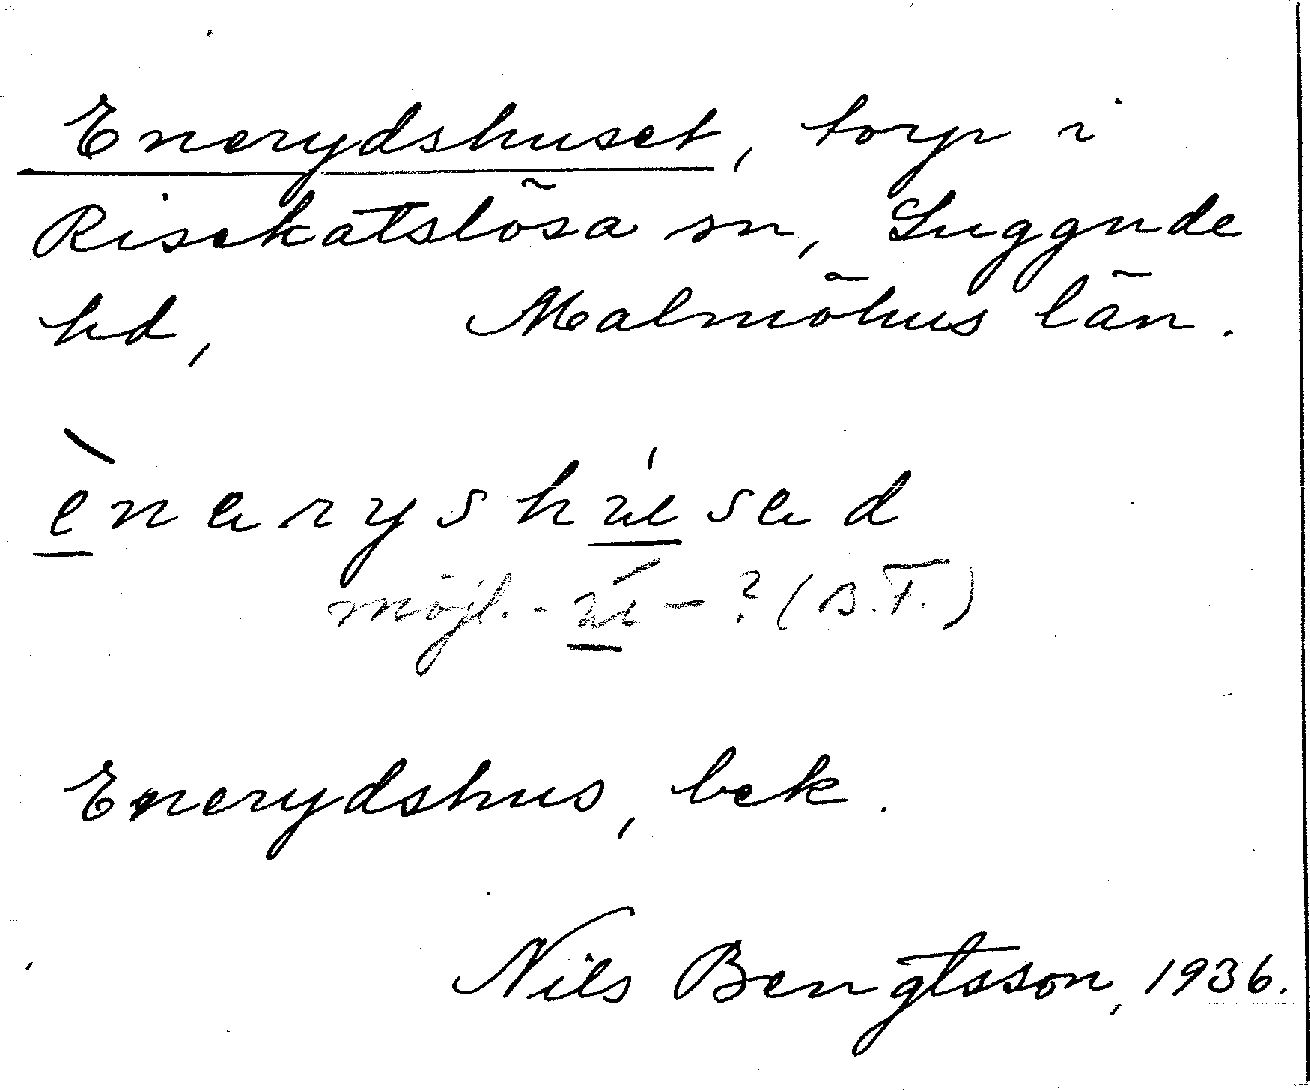 Enerydshuset, torp i
Risekatslösa sn, Luggude
hd, Malmöhus län.
ènaryshúsad
möjl. - ú - ? (B.T.)
Enerydshus, bek.
Nils Bengtsson, 1936.